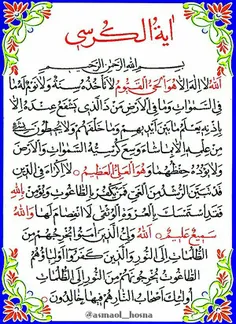 آية الكرسى
بسم الله الرحمن الرحيم
الله لا اله الا هو الحي القيوم لا تأخذه سنة ولا نوم له ما
في السموات وما في الارض من ذا الذي يشفع عنده الا
باذنه يعلم ما بين ايديهم وما خلفهم ولا يحيطون بشيء
من علمه الا بما شاء وسع كرسيه السموات والارض
ولا يؤده حفظهما وهو العلي العظيم لا اكراه في الدين
قد تبين الرشد من الغي فمن يكفر بالطاغوت ويؤمن بالله
فقد استمسك بالعروة الوثقى لا انفصام لها والله
سميع عليم الله ولي الذين آمنوا يخرجهم من
الظلمات الى النور والذين كفروا اولياؤهم
الطاغوت يخرجونهم من النور الى الظلمات
اولئك اصحاب النار هم فيها خالدون
@asmaol_hosna